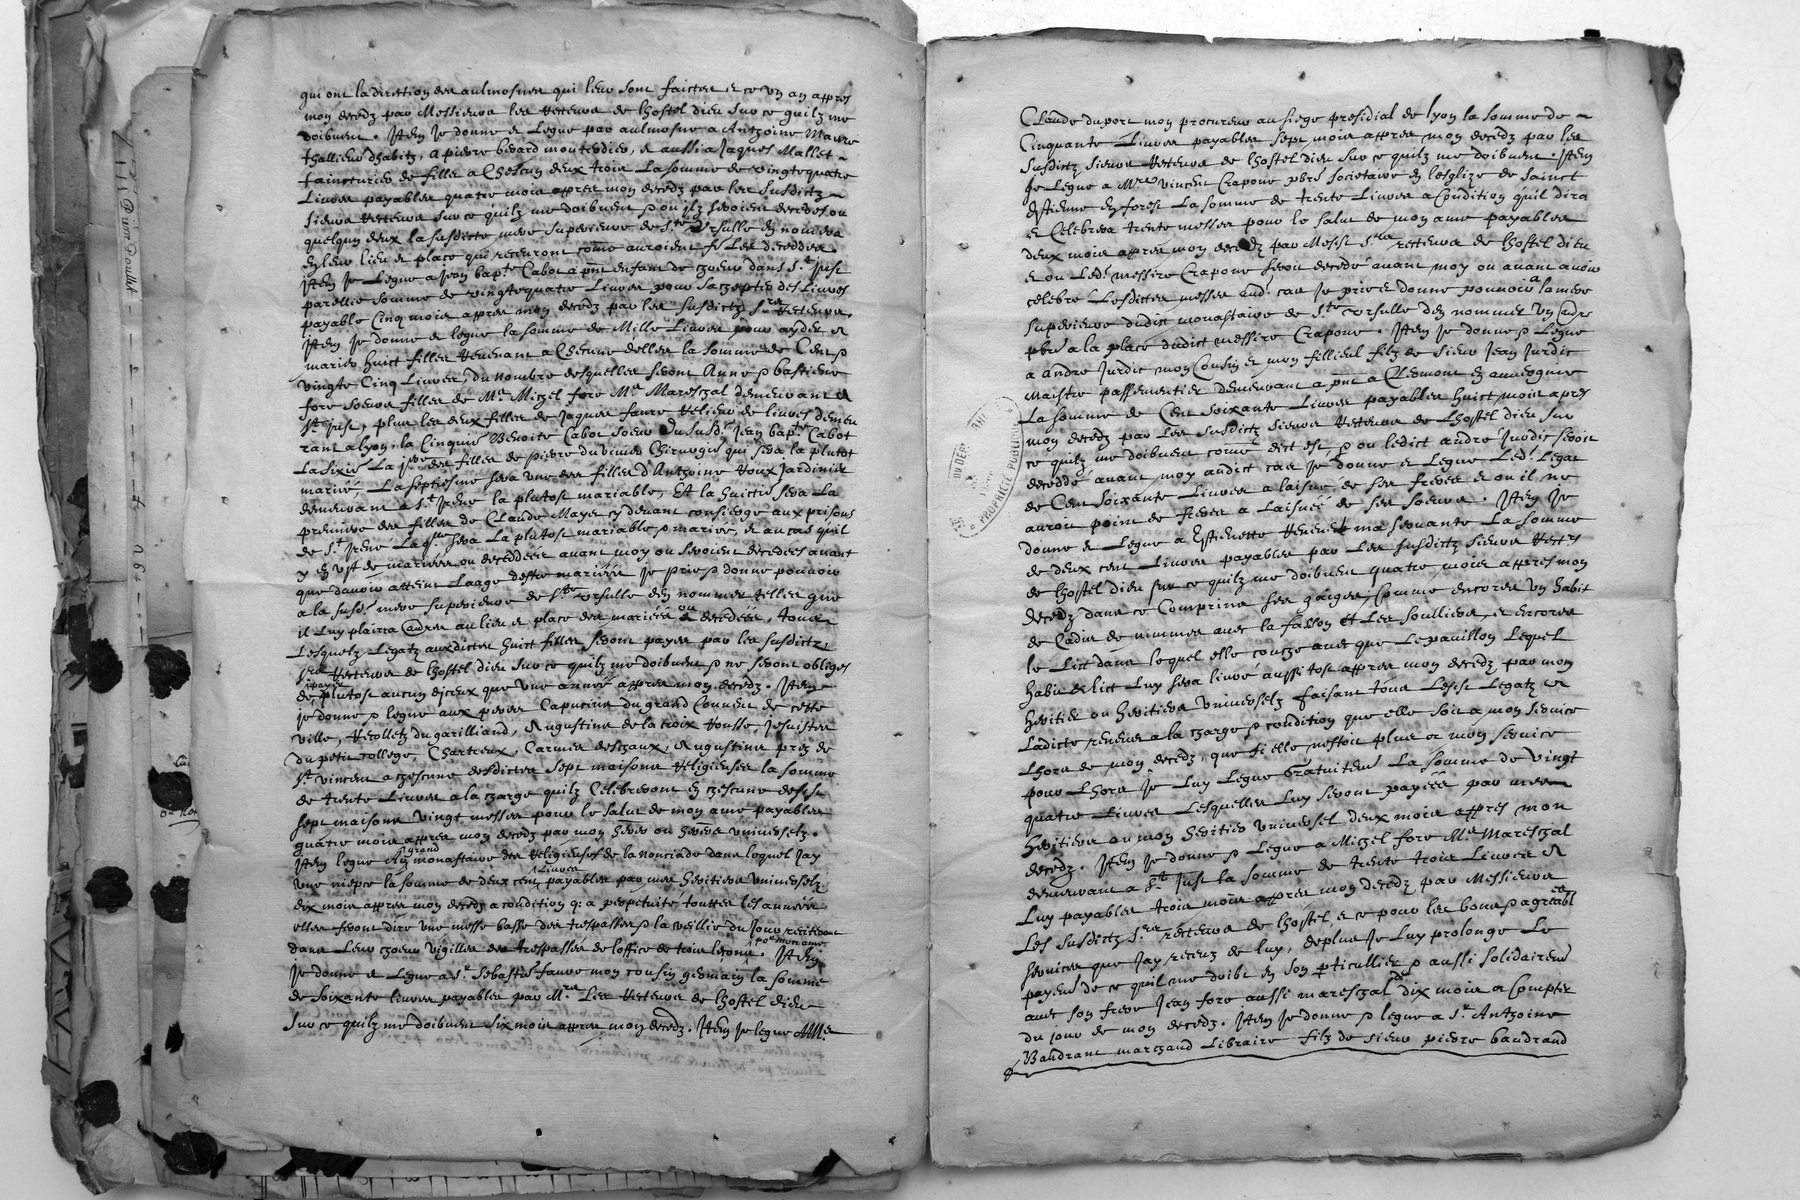 qui ont la direction des aulmosnes qui leur sont faictes et ce un an appres
mon decedz par Messieurs les Recteurs de lhostel dieu sur ce quilz me
doibvent. Item je donne et legue par aulmosne a Anthoine Maurie
thallieur dhabitz, a pierre berard, et aussi a Jaques Mallet
taincturier de fillet a Chescun deux trois la somme de vingtquatre
Livres payables quatre mois appres mon decedz par les susdictz
sieurs Recteurs sur ce quilz me doibvent et ou ilz seroient decedes ou
quelqun deux la susdicte mere superieure de Ste Ursulle en nomera
en leur lieu et place qui receuront come auroient fet les deceddes.
Item Je Legue a Jean bapte Cabot a pnt enfant de choeur dans St Just
pareillie somme de vingtquatre Livres pour sachepter des Livres
payable Cinq mois appres mon decedz par les susdictz Srs Recteurs.
Item Je donne et legue la somme de Mille Livres pour ayder a
marier huict filles revenant a Chescune delles la somme de Cent
vingte Cinq Livres, du nombre desquelles seront Anne et bastienne
fore soeurs filles de Me Michel fore Me Mareschal demeurant a
St Just, plus les deux filles de Jaques faure relieur de livres demeu
rant a lyon, la Cinquie Benoite Cabot soeur du susdt Jean bapte Cabot
La sixie La des filles de pierre du vivier Chirurgie qui sera la plutot
mariée, La septiesme sera une des filles d'Anthoine Roux Jardinier
demeurant a St Irene la plutost mariable, Et la huictie sera La
premiere des filles de Claude Mayet cy devant consierge aux prisons
de St Irene Laqlle sera La plutost mariable et mariee, et au cas quil
y en ust de mariées ou deceddées avant moy ou seroient decedees avant
que davoir atteint Laage destre mariées je prie et donne pouvoir
a la susdte mere superieure de Ste Ursulle den nommer telles que
il luy plairra Cadres au lieu et place des mariées ou decedées, tous
Lesquelz Legatz ausdictes huict filles seront payes par les susdictz
Srs Recteurs de lhostel dieu sur ce quilz me doibvent et ne seront obliges
payer
de plutost aucun diceux que une année appres mon decedz. Item
je donne et legue aux peres Capucins du grand Couvent de ceste
ville, Recolletz du garilliand, Augustins de la croix Rousse, Jesuistes
du petit college, Chartreux, Carmes deschaux, Augustins prez de
St Vincent a chescune desdictes sept maisons Religieuses la somme
de trente Livres a la charge quilz Celebreront en chescune desds
sept maisons vingt messes pour le salut de mon ame payables
quatre mois appres mon decedz par mon heres ou heres universelz.
grand
Item legue au monastaire des Religieuses de la nonciade dans lequel Jay
Livres
une niepce la somme de deux cent payables par mes heritiers universelz
dix mois appres mon decedz a condition q a perpetuité, touttes les années
elles feront dire une messe basse des trespasses et la veillie du Jour reciteront
dans Leur choeur vigilles des trespasses de loffice de trois leçons. Item
por mon ame
Je donne et Legue a Sr Sebastie faure mon cousin germain la somme
de soixante livres payables par Mrs Les Recteurs de lhostel dieu
sur ce quilz me doibvent six mois appres mon decedz. Item je legue a Me
Claude duport mon procureur au siege presidial de lyon la somme de
Cinquante Livres payables sept mois appres mon decedz par les
susdictz sieurs Recteurs de lhostel dieu sur ce quilz me doibvent. Item
je Legue a Mre vincent Crapone pbre societaire en lesglize de sainct
Estienne en forest La somme de trente Livres a condition quil dira
et Celebrera trente messes pour le salut de mon ame payables
deux mois appres mon decedz par Mesrs Srs recteurs de lhostel dieu
et ou Ledt messire Crapone seroit decedé avant moy ou avant avoir
celebre Lesdictes messes audt cas je prie et donne pouvoir a la mere
superieure dudict monastaire de Ste Ursulle den nommer un autre
pbre a la place dudict messire Crapone. Item Je donne et Legue
a Andre Jurdic mon Cousin et mon fillieul filz de sieur Jean Jurdic
maistre passementier demeurant a pnt a Clermont en auvergnie
La somme de Cent soixante Livres payables huict mois apres
mon decedz par Les susdictz sieurs Recteurs de Lhostel dieu sur
ce quilz me doibvent comme dict est, et ou ledict andré Jurdic seroit
deceddé avant moy audict cas je donne et Legue Ledt Legat
de Cent soixante Livres a laisné de ses freres et ou il ne
auroit point de freres a Laisnée de ses soeurs. Item Je
donne et Legue a Estiennette ma servante La somme
de deux cent Livres payables par Les susdictz sieurs Rectrs
de lhostel dieu sur ce quilz me doibvent quatre mois appres mon
decedz dans ce Comprins ses gaiges, Comme encores un habit
de Cadis de nimmes avec la fasson et Les soulliers, et encores
le Lict dans lequel elle couche avec que Le pavillon Lequel
habit et lict Luy sera livré aussitost appres mon decedz par mon
heritier ou heritiers universelz faisant tous Lesds Legatz a
Ladicte a la charge et condition que elle soit a mon service
Lhors de mon decedz, que si elle nestoit plus a mon service
pour Lhors Je Luy Legue Gratuitemt La somme de vingt
quatre Livres Lesquelles Luy seront payées par mes
heritiers ou mon heritier universel deux mois appres mon
decedz. Item je donne et Legue a Michel fore Me Mareschal
demeurant a St Just la somme de trente trois Livres a
Luy payables trois mois appres mon decedz par Messieurs
Les susdictz Srs recteurs de lhostel et ce pour les bons et agreabl
es
services que Jay receuz de luy, deplus Je Luy prolonge Le
payemt de ce quil me doibt en son particullier et aussi solidairemt
avec son frere Jean fore aussi mareschal dix mois a Compter
du jour de mon decedz. Item Je donne et legue a Sr Anthoine
Baudrant marchand Libraire filz de sieur pierre baudrand
PROPRIETE PUBLIQUE